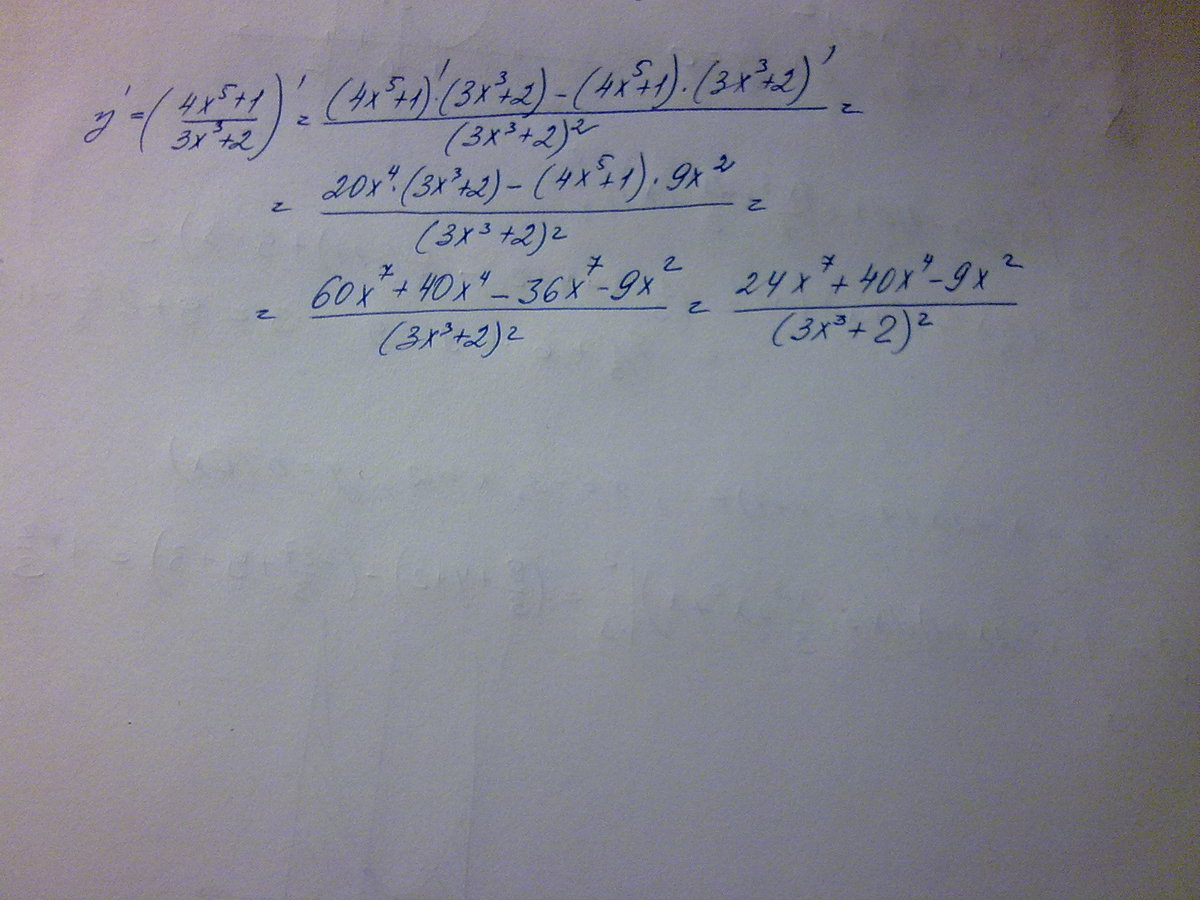 y' = ( (4x⁵+1)/(3x³+2) )' = ( (4x⁵+1)'·(3x³+2) - (4x⁵+1)·(3x³+2)' )/(3x³+2)² =
= ( 20x⁴·(3x³+2) - (4x⁵+1)·9x² )/(3x³+2)² =
= ( 60x⁷+40x⁴-36x⁷-9x² )/(3x³+2)² = ( 24x⁷+40x⁴-9x² )/(3x³+2)²